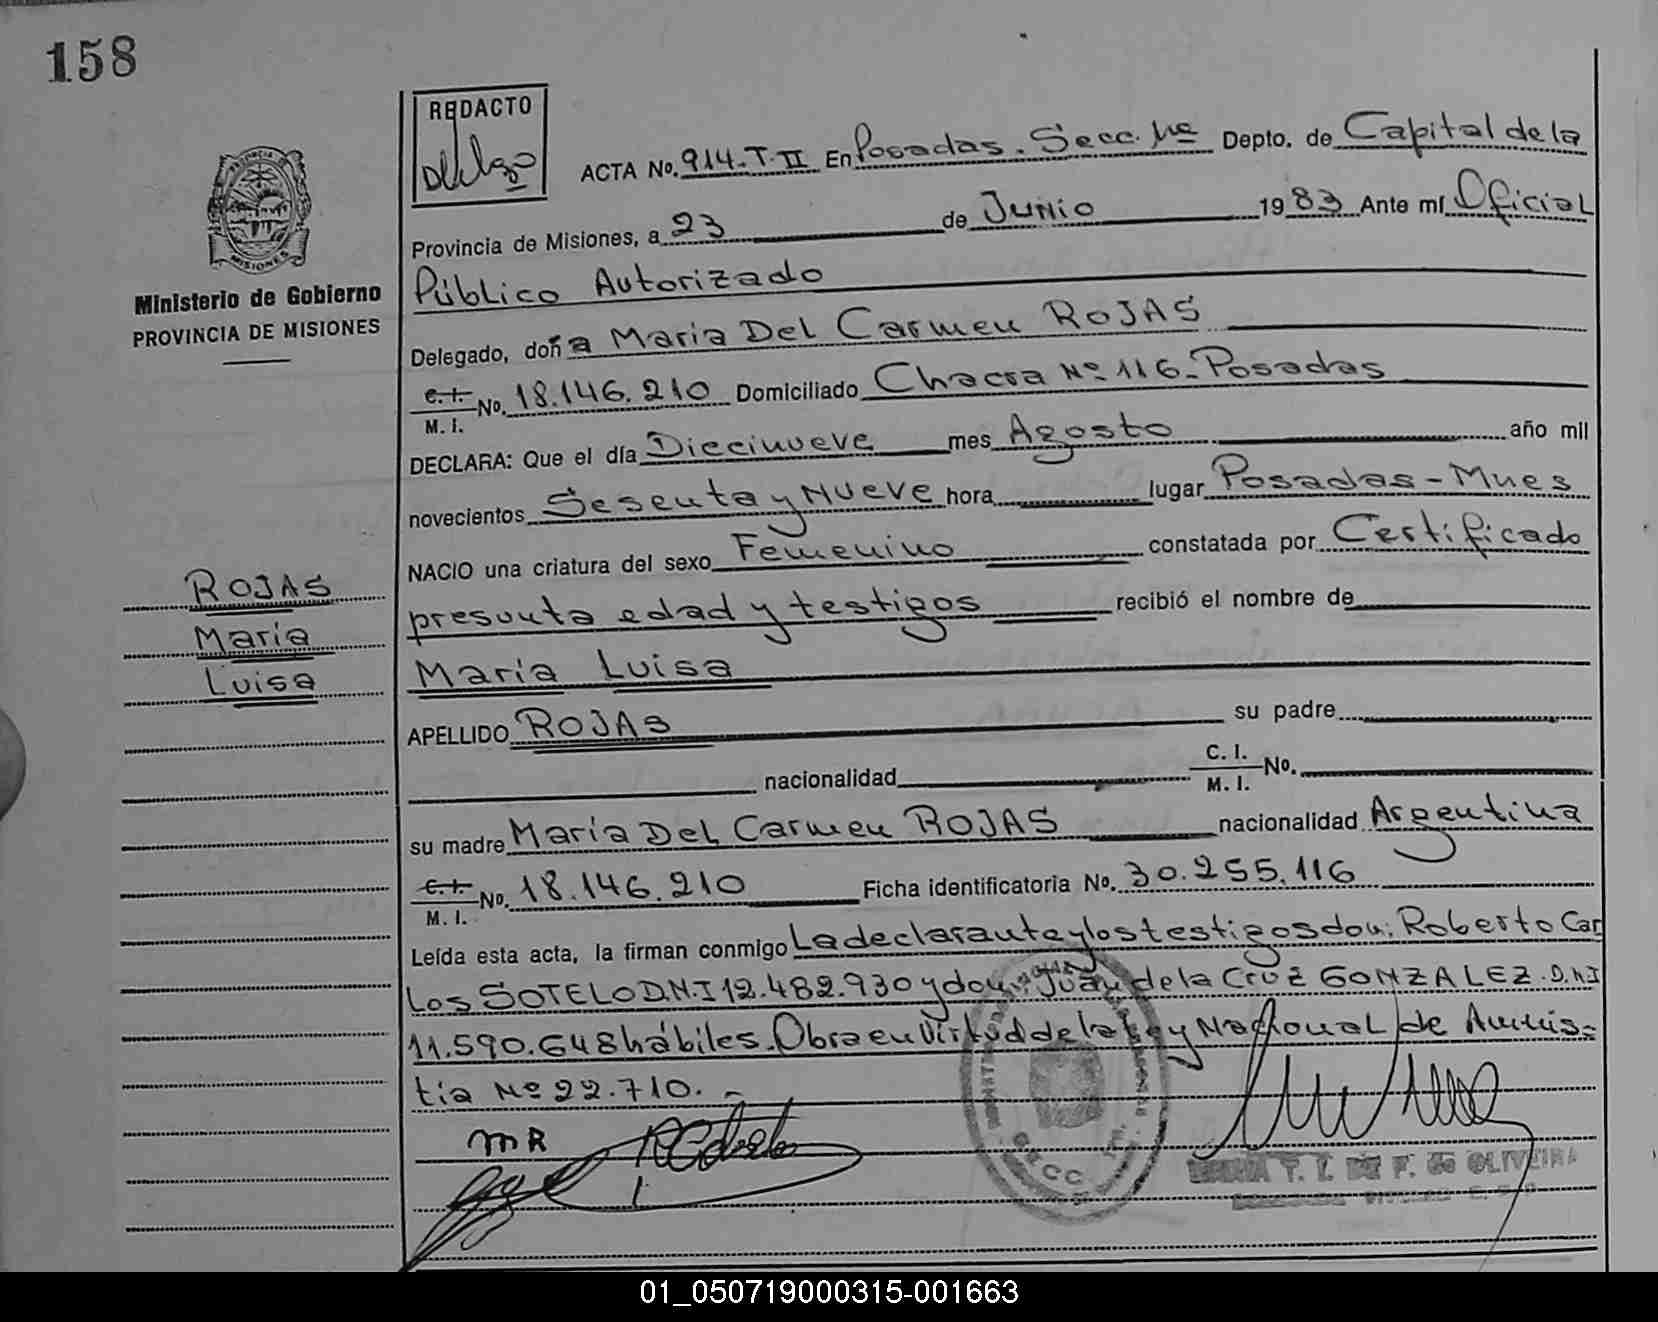 158
REDACTO
ACTA No. 914-T-II En Posadas. Secc. 1ra Depto. de Capital de la
Provincia de Misiones, a 23 de Junio 1983 Ante mí Oficial
Público Autorizado
MISIONES
Ministerio de Gobierno
PROVINCIA DE MISIONES
Delegado, doña Maria Del Carmen ROJAS
C.I. M. I. No. 18.146.210 Domiciliado Chacra Nº 116-Posadas
DECLARA: Que el día Diecinueve mes Agosto año mil
novecientos Sesenta y Nueve hora lugar Posadas-Mnes
NACIO una criatura del sexo Femenino constatada por Certificado
presunta edad y testigos recibió el nombre de
María Luisa
ROJAS
María
Luisa
APELLIDO ROJAS su padre
nacionalidad C. I. M. I. No.
su madre María Del Carmen ROJAS nacionalidad Argentina
C.I. M. I. No. 18.146.210 Ficha identificatoria No. 30.255.116
Leída esta acta, la firman conmigo La declarante y los testigos don: Roberto Car
los SOTELO D.N.I 12.482.930 y don: Juan de la Cruz GONZALEZ. D.N.I
11.590.648 hábiles. Obra en Virtud de la Ley Nacional de Amnis-
tía Nº 22.710.-
MR
SECC.
T. I. DE F. DE OLIVEIRA
01_050719000315-001663